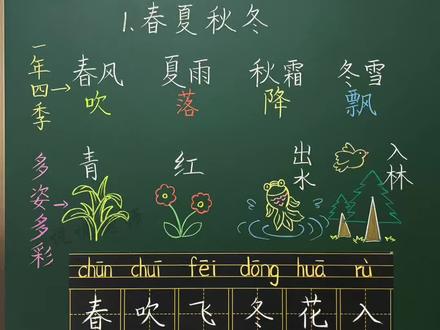 1.春夏秋冬
一年四季
春风 夏雨 秋霜 冬雪
吹 落 降 飘
多姿多彩
青 红 出水 入林
chūn chuī fēi dōng huā rù
春 吹 飞 冬 花 入